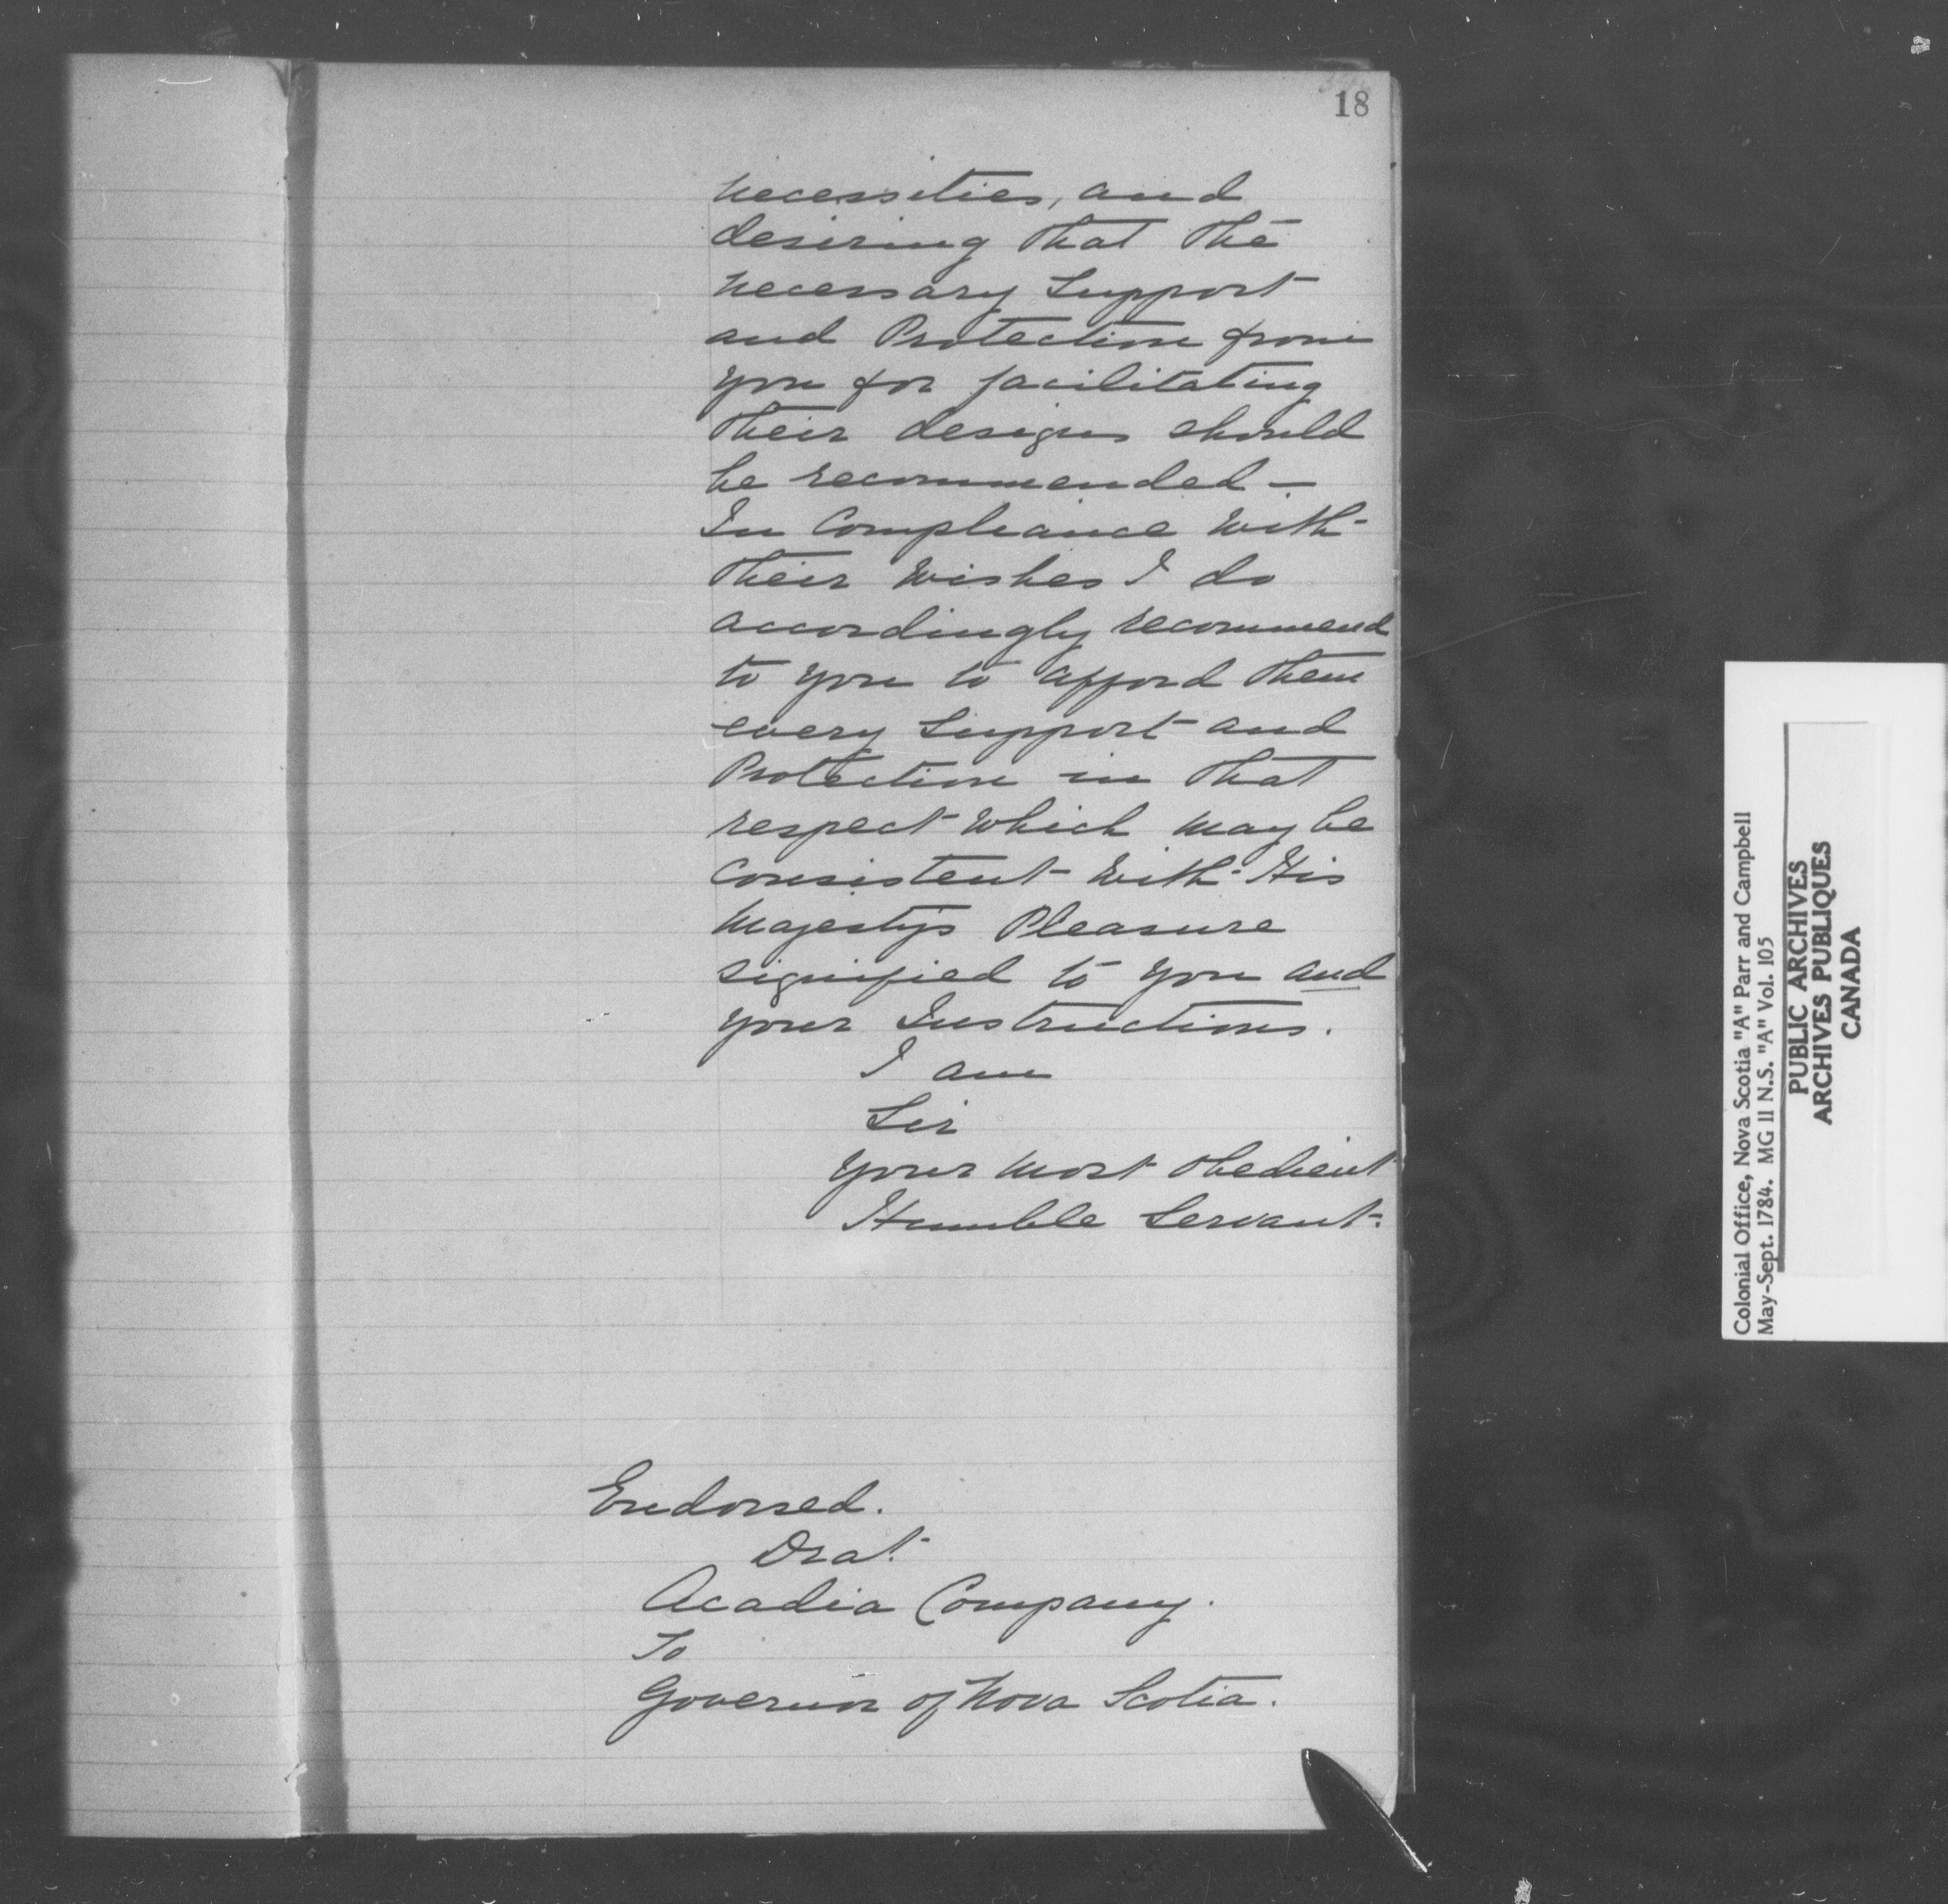 18
necessities, and
desiring that the
necessary Support
and Protection from
you for facilitating
their designs should
be recommended —
In Compliance with
their wishes I do
accordingly recommend
to you to afford them
every Support and
Protection in that
respect which may be
Consistent with His
Majesty's Pleasure
signified to you and
your Instructions.
I am
Sir
Your most obedient
Humble Servant.
Endorsed.
Drat.
Acadia Company.
To
Governor of Nova Scotia.
Colonial Office, Nova Scotia "A" Parr and Campbell
May-Sept. 1784. MG 11 N.S. "A" Vol. 105
PUBLIC ARCHIVES
ARCHIVES PUBLIQUES
CANADA